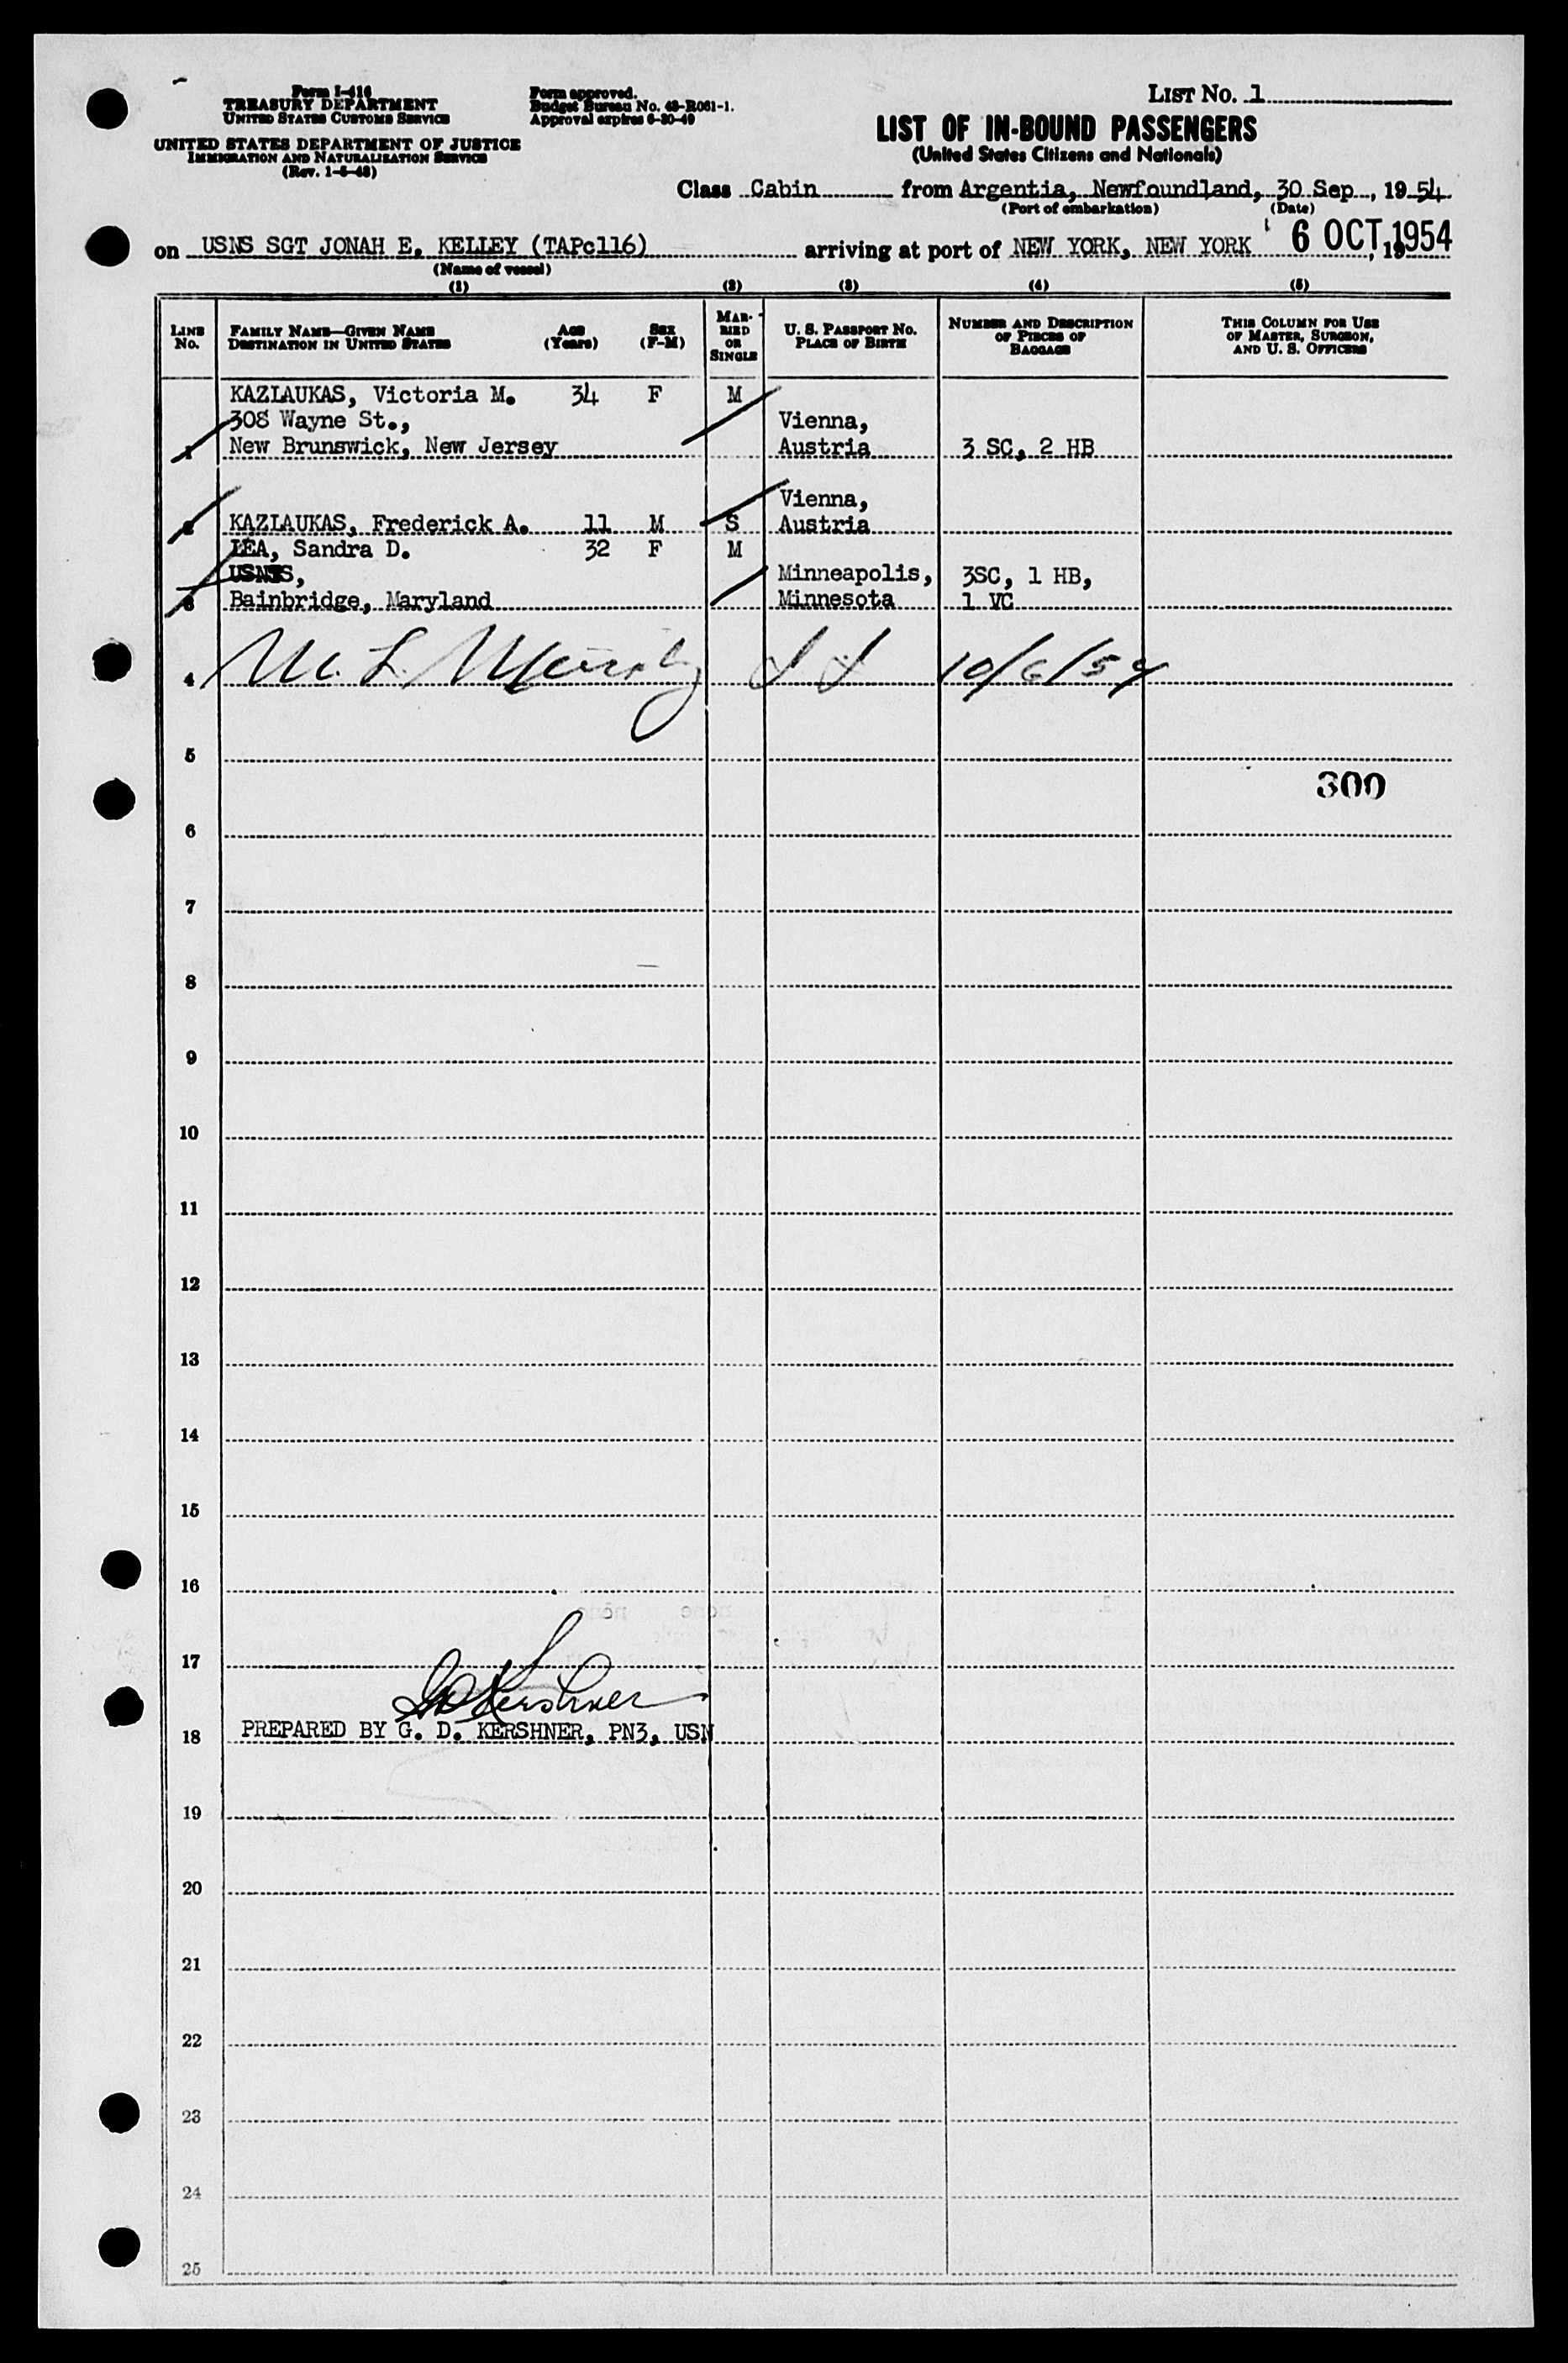 Form I-416
TREASURY DEPARTMENT
UNITED STATES CUSTOMS SERVICE
UNITED STATES DEPARTMENT OF JUSTICE
IMMIGRATION AND NATURALIZATION SERVICE
(Rev. 1-5-48)
Form approved.
Budget Bureau No. 43-R061-1.
Approval expires 6-30-49
LIST NO. 1
LIST OF IN-BOUND PASSENGERS
(United States Citizens and Nationals)
Class Cabin from Argentia, Newfoundland, 30 Sep, 1954
(Port of embarkation) (Date)
on USNS SGT JONAH E. KELLEY (TAPc116) arriving at port of NEW YORK, NEW YORK 6 OCT 1954, 19
(Name of vessel)
(1) (2) (3) (4) (5)
LINE NO. FAMILY NAME—GIVEN NAME DESTINATION IN UNITED STATES AGE (Years) SEX (F-M) MARRIED OR SINGLE U. S. PASSPORT NO. PLACE OF BIRTH NUMBER AND DESCRIPTION OF PIECES OF BAGGAGE THIS COLUMN FOR USE OF MASTER, SURGEON, AND U. S. OFFICERS
KAZLAUKAS, Victoria M. 34 F M
308 Wayne St., Vienna,
1 New Brunswick, New Jersey Austria 3 SC, 2 HB
Vienna,
2 KAZLAUKAS, Frederick A. 11 M S Austria
LEA, Sandra D. 32 F M
Minneapolis, 3SC, 1 HB,
3 Bainbridge, Maryland Minnesota 1 VC
4 M. L. Murphy 10/6/54
5
300
6
7
8
9
10
11
12
13
14
15
16
17 GD Kershner
18 PREPARED BY G. D. KERSHNER, PN3, USN
19
20
21
22
23
24
25